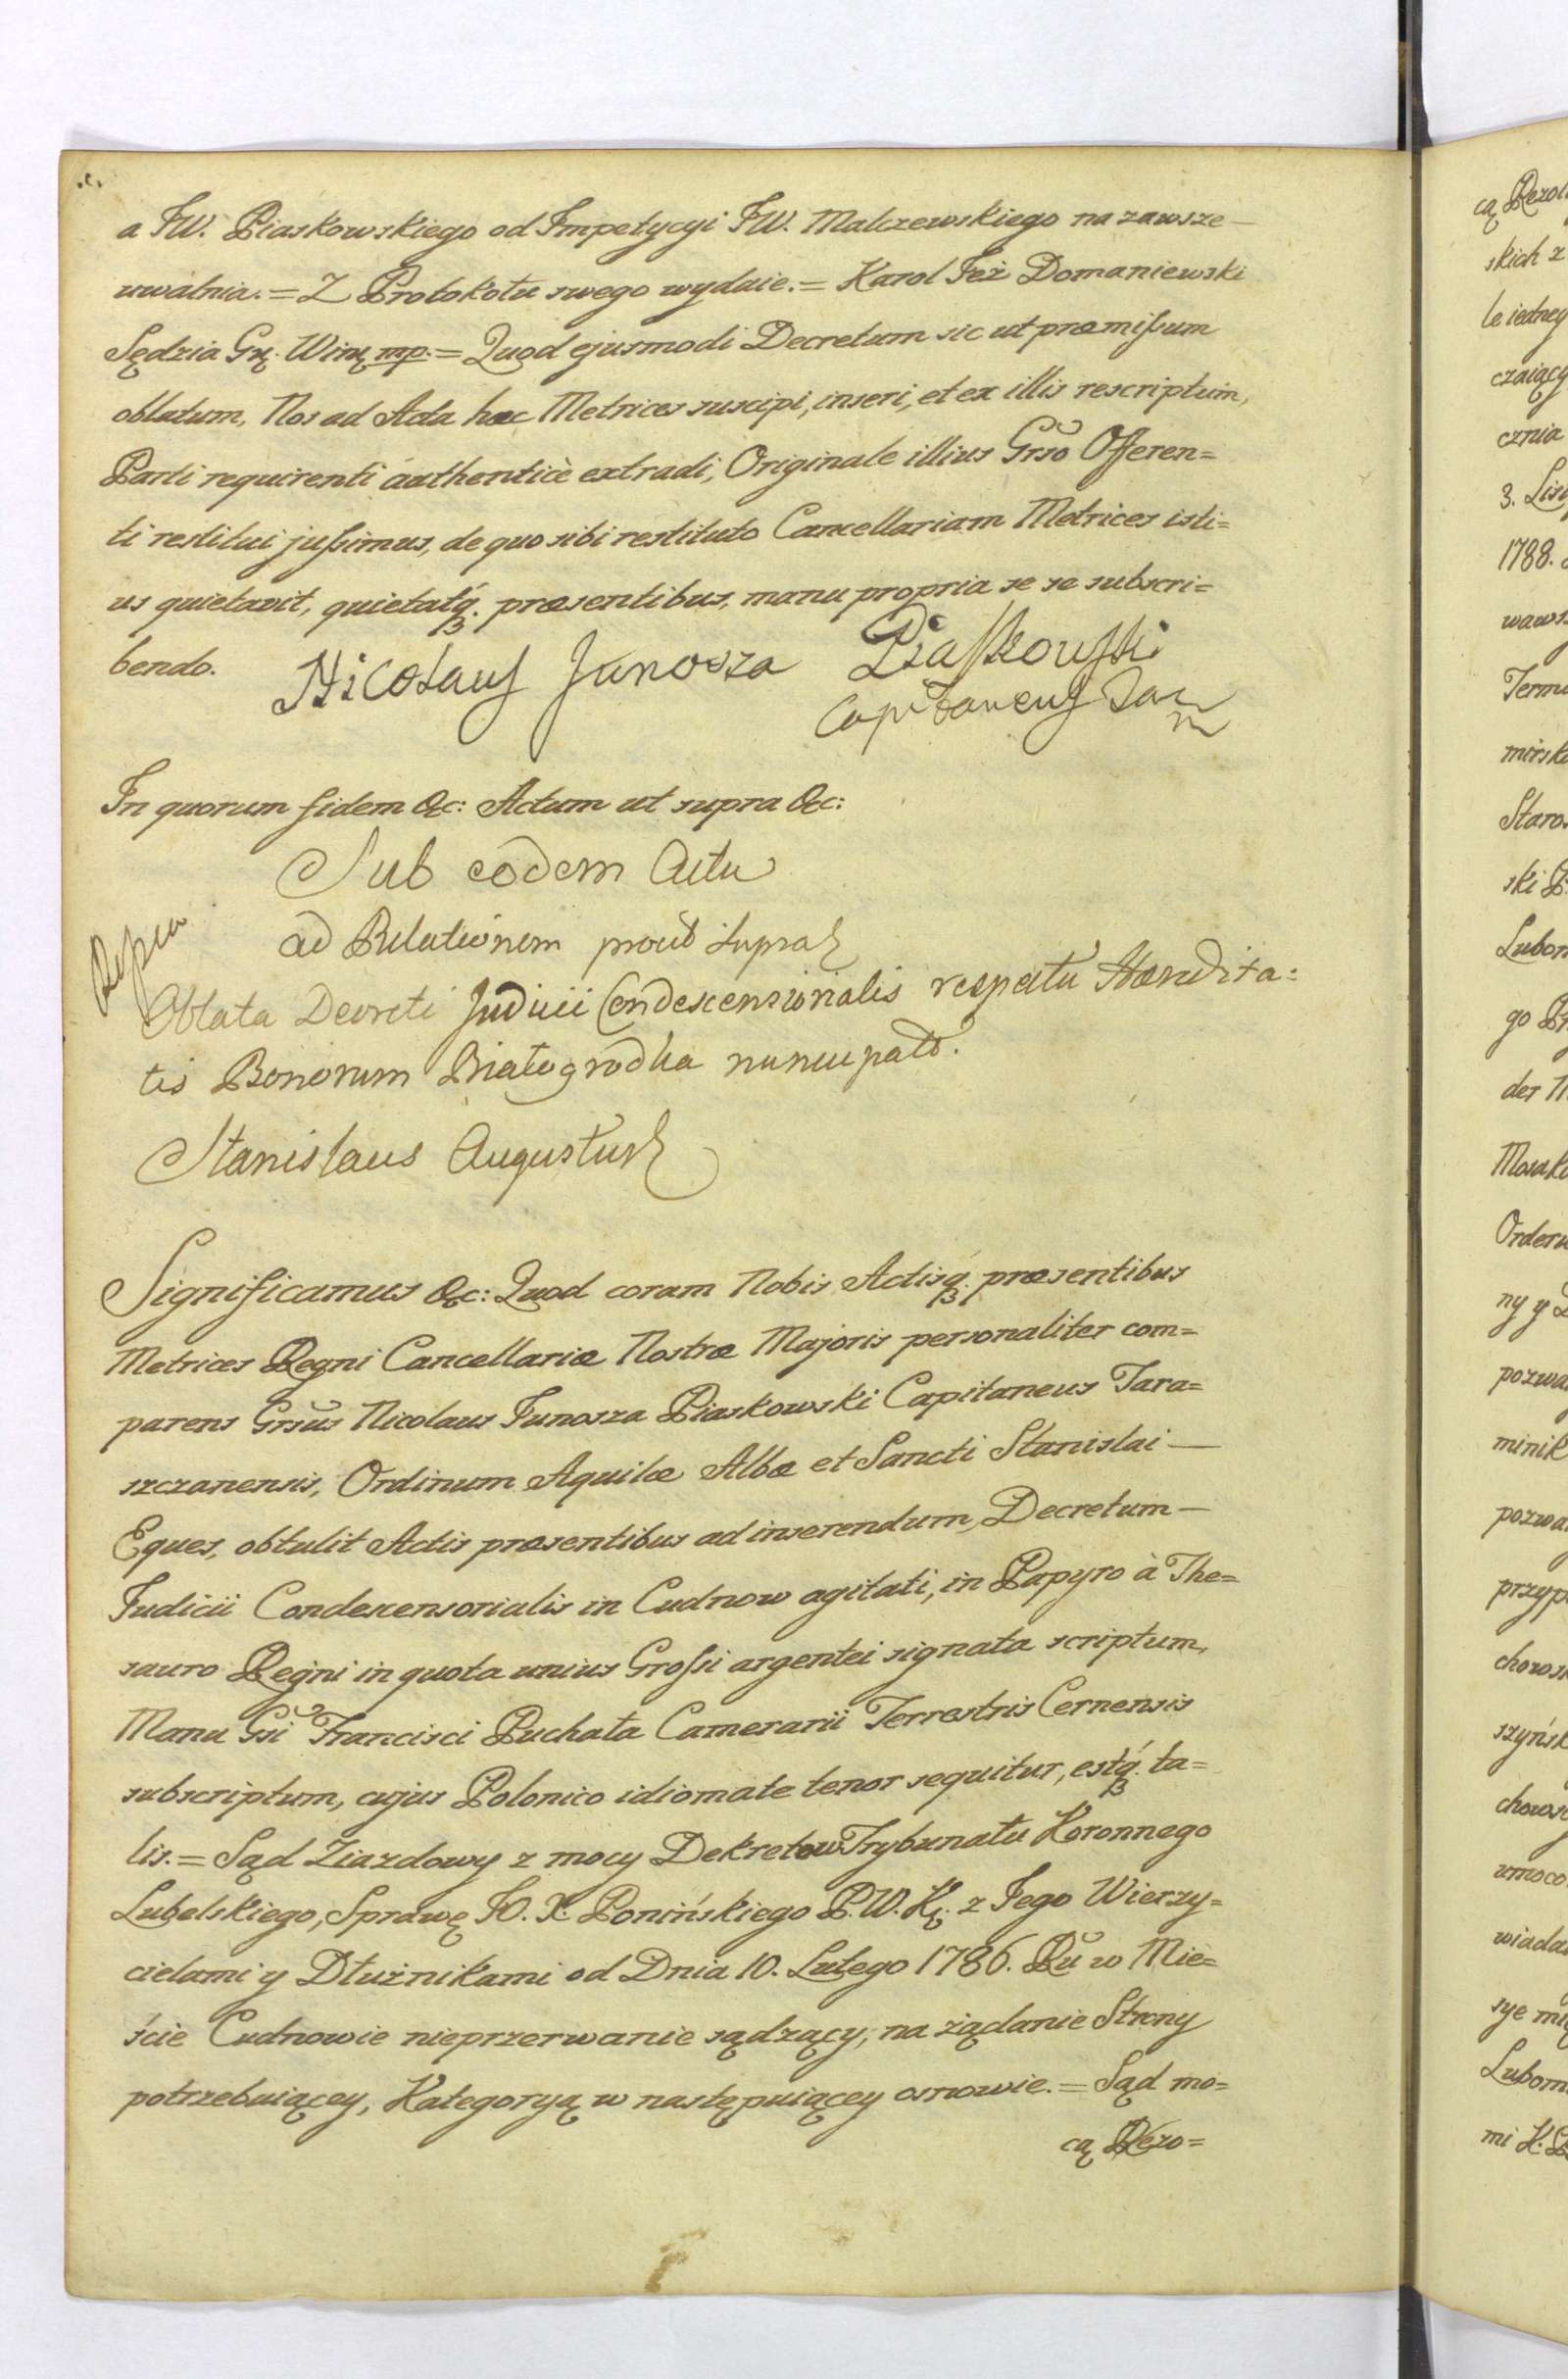 a JW. Piaskowskiego od Impetycyi JW. Malczewskiego na zawsze —
uwalnia. = Z Protokołu swego wydaie. = Karol Jeż Domaniewski
Sędzia Gṛ. Winṇ mp. = Quod ejusmodi Decretum sic ut præmissum
oblatum, Nos ad Acta hæc Metrices suscipi, inseri, et ex illis rescriptum,
Parti requirenti authenticè extradi, Originale illius Grso Offeren=
ti restitui jussimus, de quo sibi restituto Cancellariam Metrices isti=
us quietavit, quietatq́. præsentibus, manu propria se se subscri=
bendo. Nicolaus Junosza Piaskowski
Capitaneus Tar
m
In quorum fidem &c: Actum ut supra &c:
Sub eodem Actu
ad Relationem prout supra
Oblata Decreti Judicii Condescensorialis respectu Hæredita=
tis Bonorum Białogrodka nuncupato.
Stanislaus Augustus
Significamus &c: Quod coram Nobis Actisq́. præsentibus
Metrices Regni Cancellariæ Nostræ Majoris personaliter com=
parens Grsus Nicolaus Junosza Piaskowski Capitaneus Tara=
szczanensis, Ordinum Aquilæ Albæ et Sancti Stanislai —
Eques, obtulit Actis præsentibus ad inserendum, Decretum —
Judicii Condescensorialis in Cudnow agitati, in Papyro à The=
sauro Regni in quota unius Grossi argentei signata scriptum,
Manu Gsi Francisci Puchała Camerarii Terrestris Cernensis
subscriptum, cujus Polonico idiomate tenor sequitur, estq́. ta=
lis. = Sąd Ziazdowy z mocy Dekretow Trybunału Koronnego
Lubelskiego, Sprawę JO. X. Ponińskiego P. W. K. z Jego Wierzy=
cielami y Dłużnikami od Dnia 10. Lutego 1786. Ru w Mie=
ście Cudnowie nieprzerwanie sądzący, na żądanie Strony
potrzebuiącey, Kategoryą w następuiącey osnowie. = Sąd mo=
cą Rezo=
cą Rezol
skich z
le iedneg
czaiący
cznia
3. Lis
1788.
waws
Term
mirsk
Staros
ski P.
Lubom
go P
der N
Moszk
Orderu
ny y
pozwa
minik
pozwa
przyp
choros
szyńsk
chowsc
umoco
wiada
sye mi
Lubom
mi K.